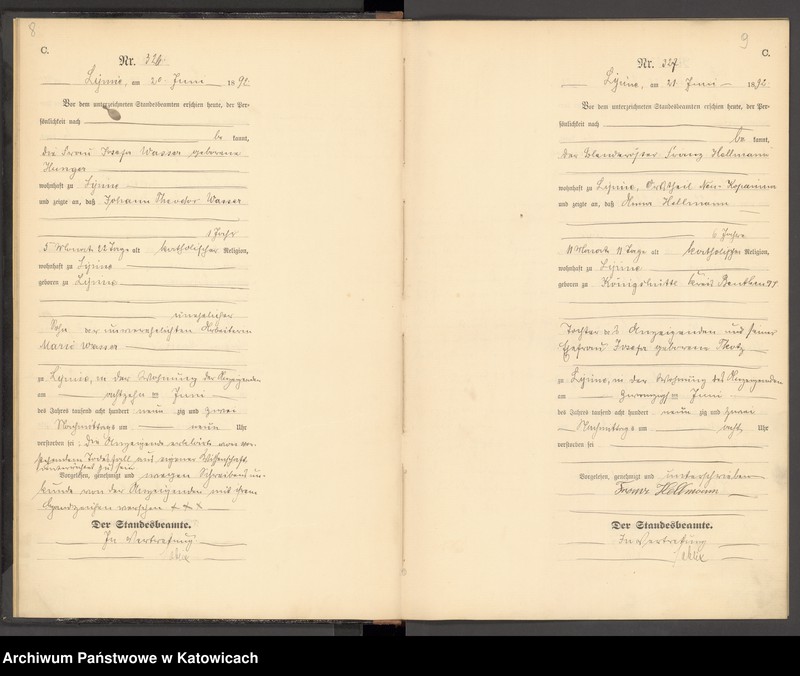 8
C.
Nr. 326.
Lipine, am 20. Juni 1892.
Vor dem unterzeichneten Standesbeamten erschien heute, der Per-
sönlichkeit nach
be kannt,
die Frau Josefa Wassa geborene
wohnhaft zu Lipine
und zeigte an, daß Johann Theodor Wassa
1 Jahr
5 Monat 22 Tage alt katholischer Religion,
wohnhaft zu Lipine
geboren zu Lipine
unehelicher
Sohn der unverehelichten Arbeiterin
Marie Wassa
zu Lipine, in der Wohnung der Anzeigenden
am achtzehnten Juni
des Jahres tausend acht hundert neun zig und zwei
Nachmittags um neun Uhr
verstorben sei. Die Anzeigende erklärte von vor-
stehendem Todesfall aus eigener Wissenschaft
unterrichtet zu sein
Vorgelesen, genehmigt und wegen Schreibensun-
kunde von der Anzeigenden mit ihrem
Handzeichen versehen + + +
Der Standesbeamte.
In Vertretung
9
C.
Nr. 327.
Lipine, am 21. Juni 1892.
Vor dem unterzeichneten Standesbeamten erschien heute, der Per-
sönlichkeit nach
be kannt,
der Blenderöster Franz Hellmann
wohnhaft zu Lipine, Ortstheil Neu-Kopanina
und zeigte an, daß Hellmann
6 Jahre
11 Monat 11 Tage alt katholischer Religion,
wohnhaft zu Lipine
geboren zu Königshütte Kreis Beuthen
Tochter des Anzeigenden und seiner
Ehefrau Josefa geborene
zu Lipine, in der Wohnung des Anzeigenden
am zwanzigsten Juni
des Jahres tausend acht hundert neun zig und zwei
Nachmittags um acht Uhr
verstorben sei
Vorgelesen, genehmigt und unterschrieben
Franz Hellmann
Der Standesbeamte.
In Vertretung
Archiwum Państwowe w Katowicach